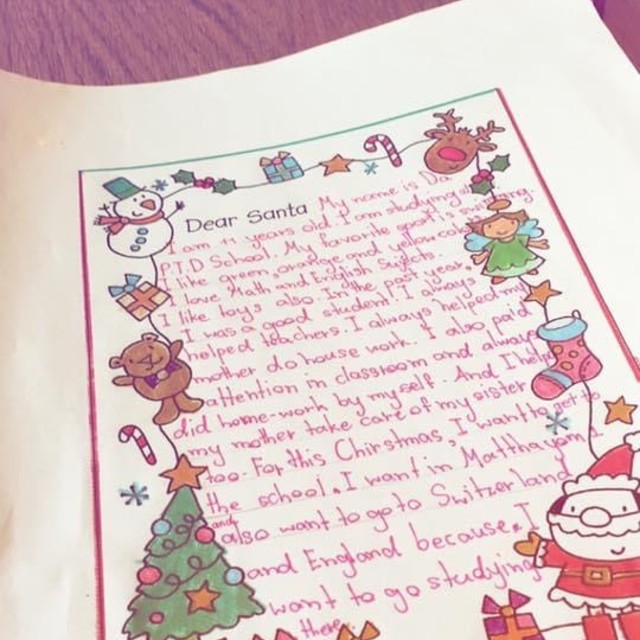 Dear Santa My name is Da
I am 11 years old. I am studying
P.T.D School. My favorite sport is
I like green, orange and yellow
I love Math and English Sujects.
I like toys also. In the past year,
I was a good student. I always
helped teachers. I always helped my
mother do house work. I also paid
attention in classroom and always
did home-work by myself. And I help
my mother take care of my sister
too. For this Chirstmas, I want to get to
the school. I want in Matthayom
and also want to go to Switzerland
and England because I
want to go studying
there.